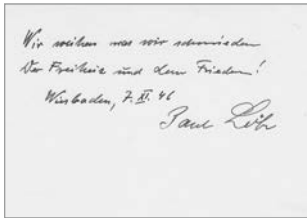 Wir weihen was wir schmieden
Der Freiheit und dem Frieden!
Wiesbaden, 7. XI. 46
Paul Löbe